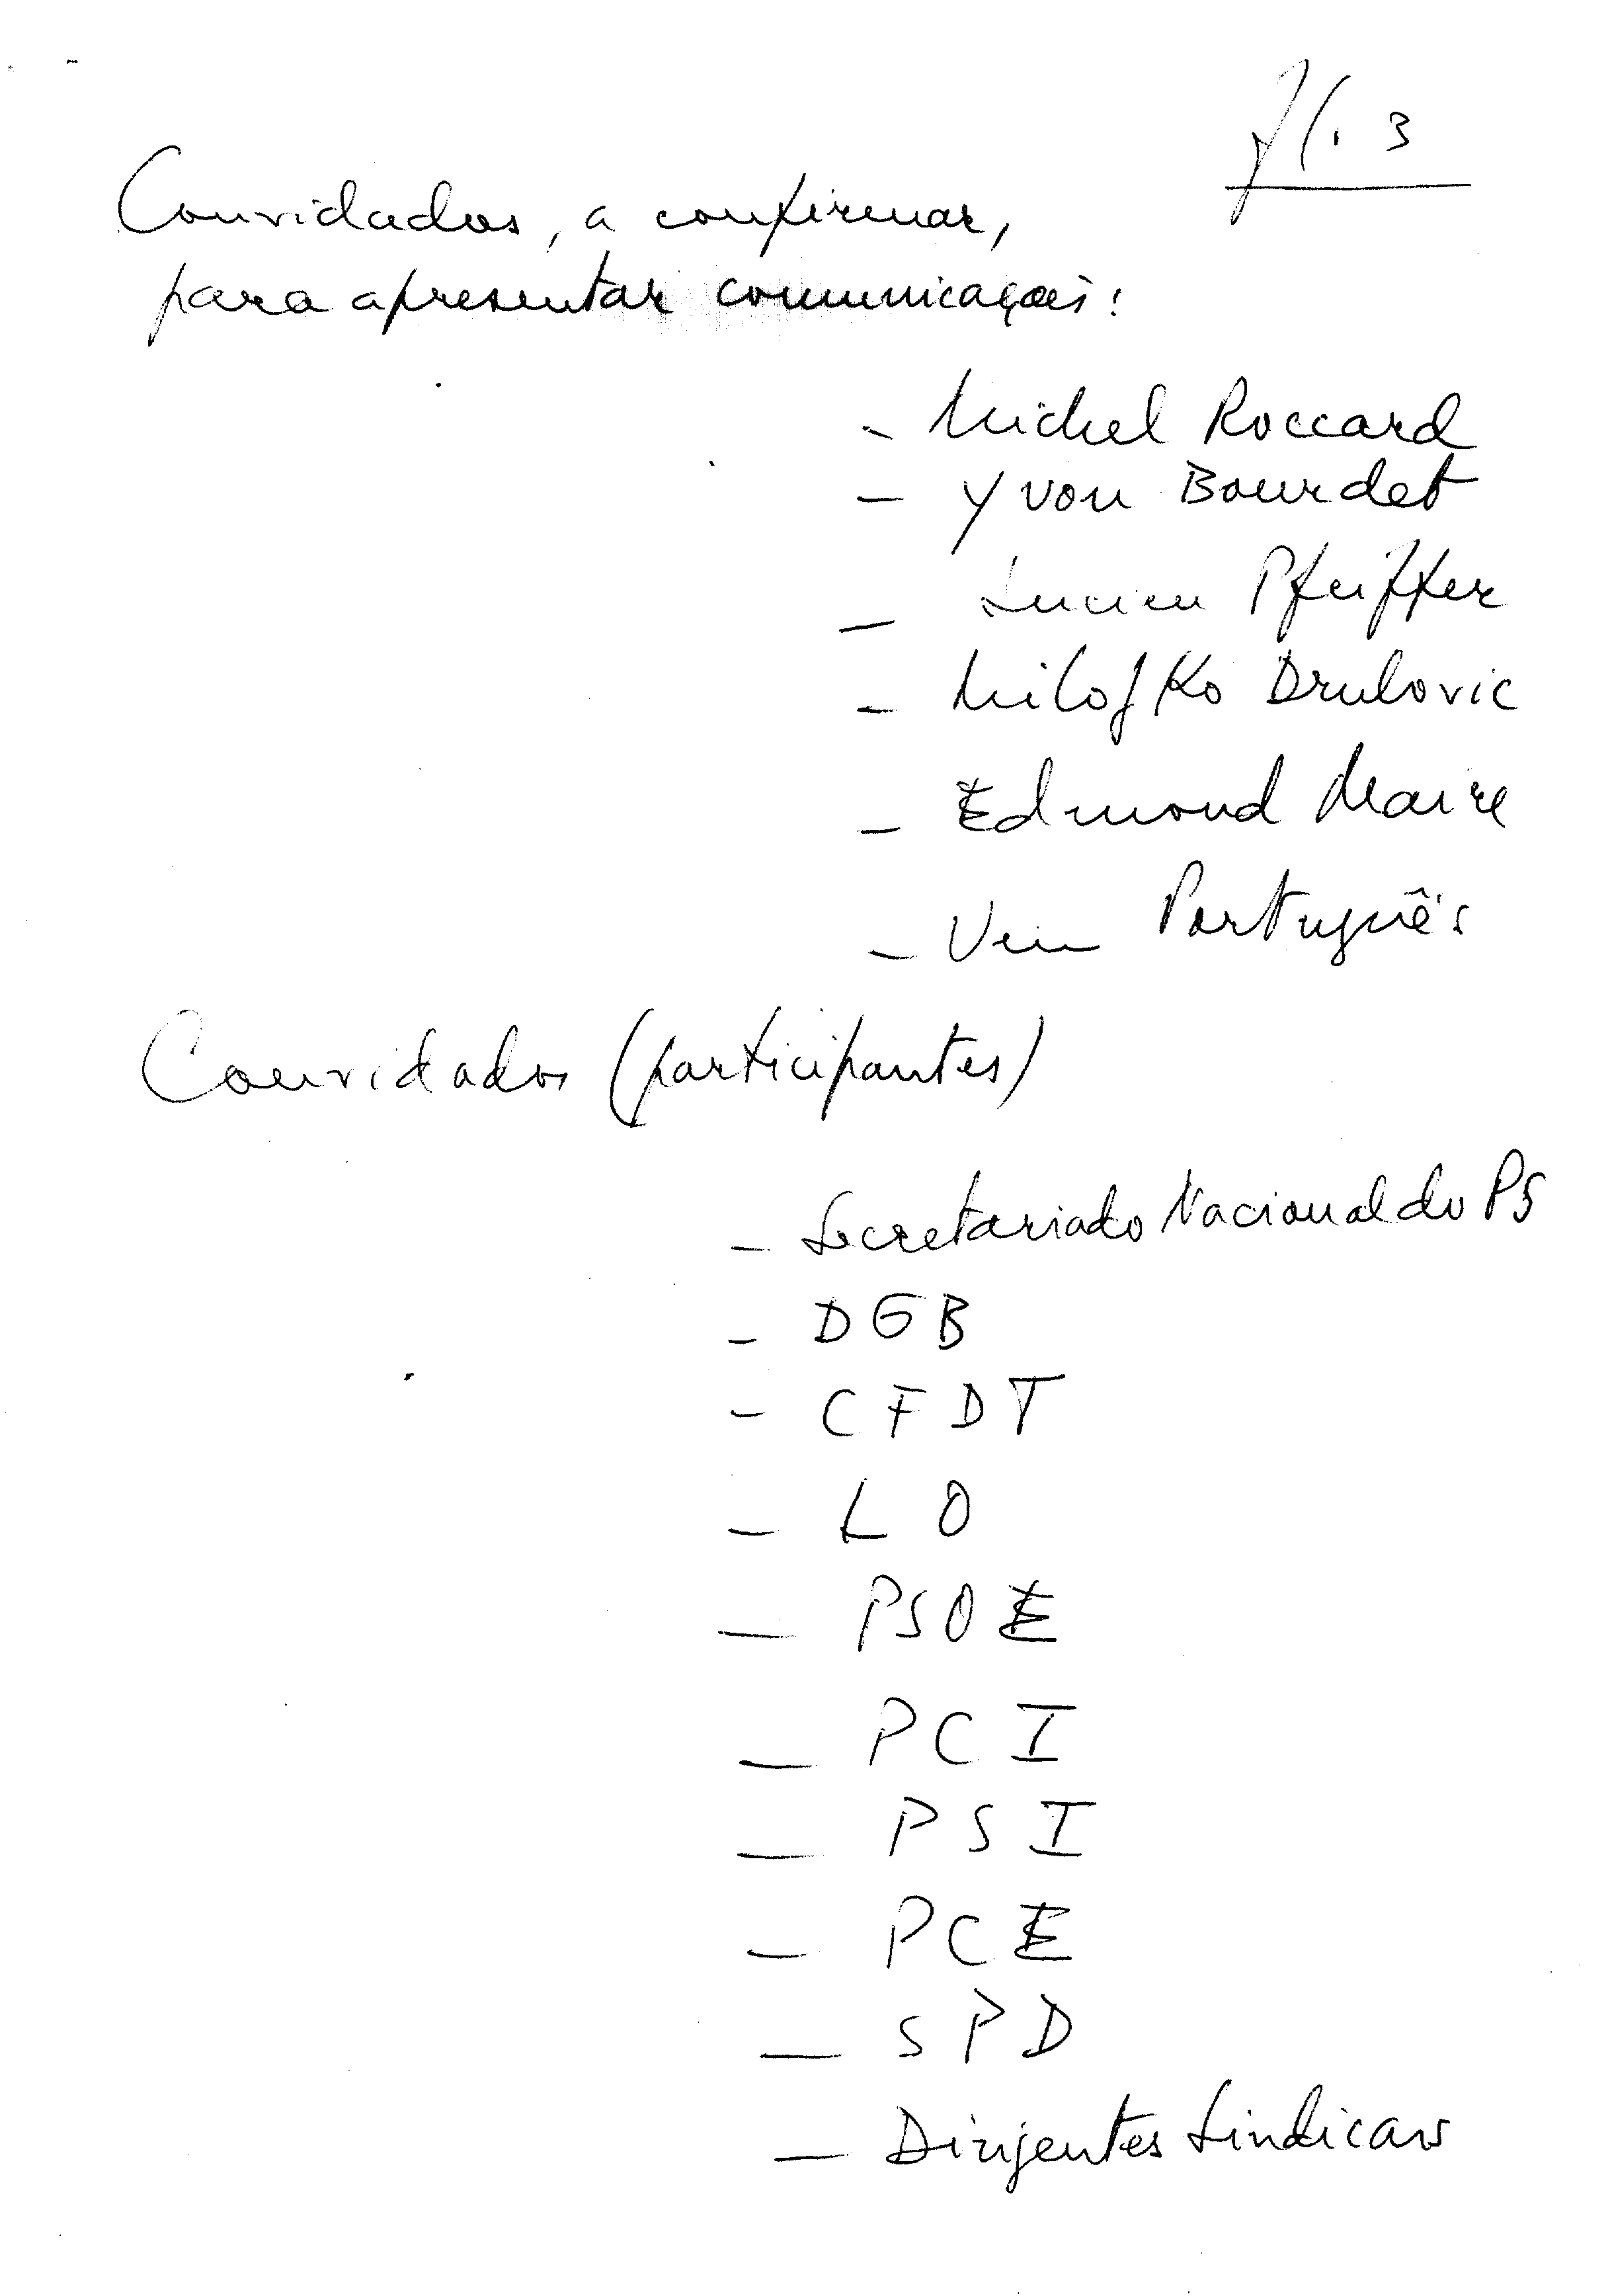 fl. 3
Convidados, a confirmar,
para apresentar comunicações:
- Michel Roccard
- Yvon Bourdet
- Lucien Pfeiffer
- Milojko Drulovic
- Edmond Maire
- Um Português
Convidados (participantes)
- Secretariado Nacional do PS
- DGB
- CFDT
- LO
- PSOE
- PCI
- PSI
- PCE
- SPD
- Dirigentes Sindicais